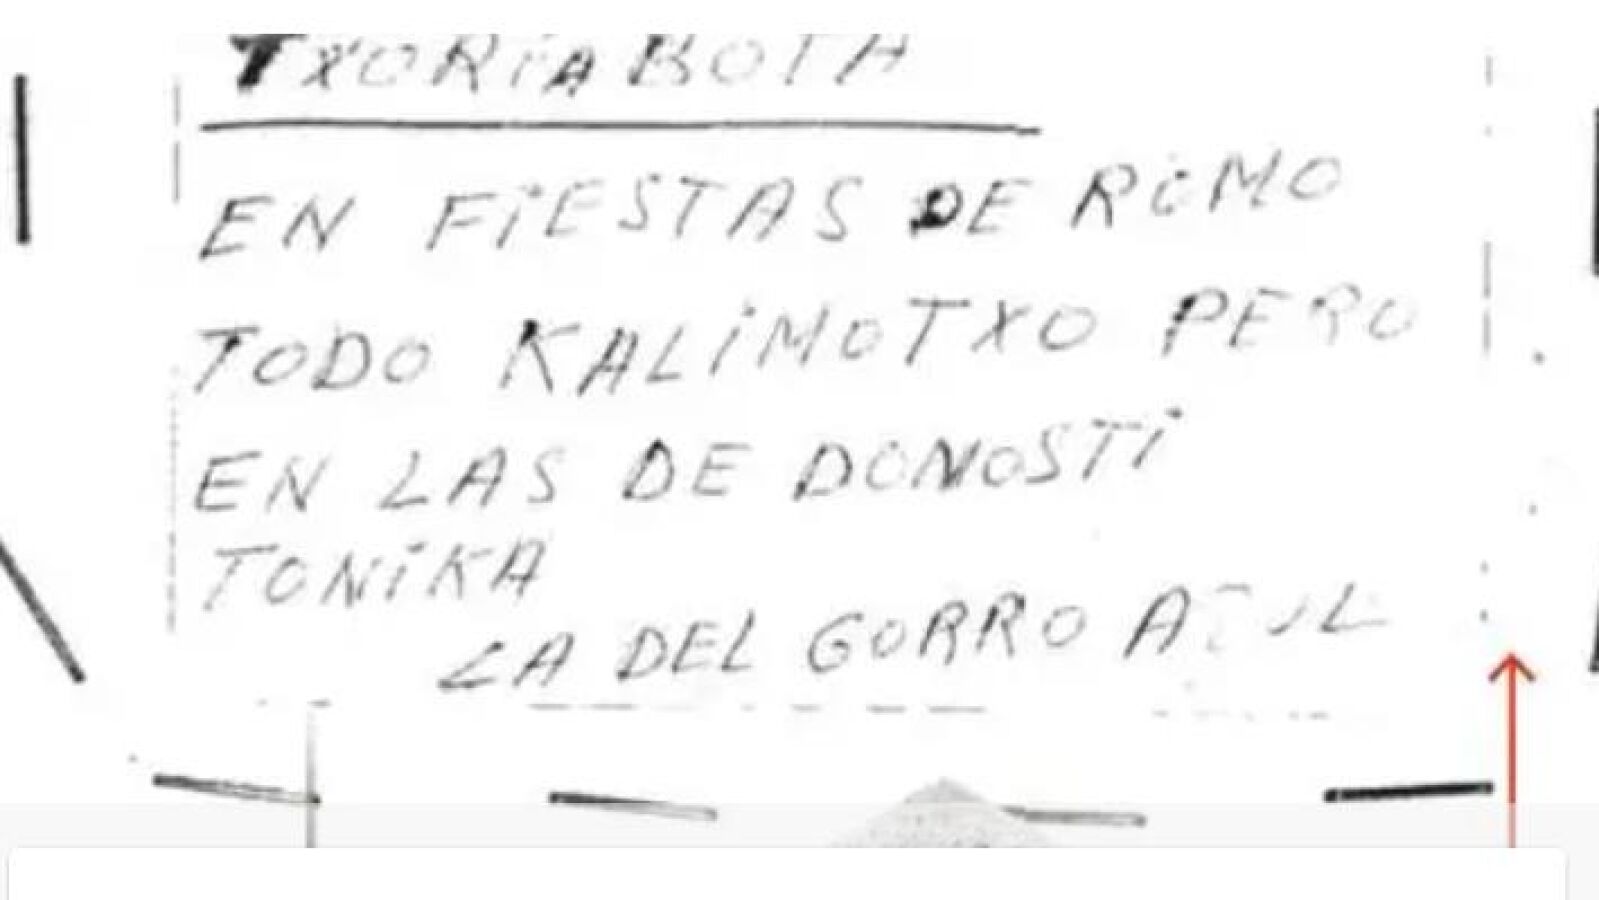 TXORIABOTA
EN FIESTAS DE ROMO
TODO KALIMOTXO PERO
EN LAS DE DONOSTI
TONIKA
LA DEL GORRO AZUL